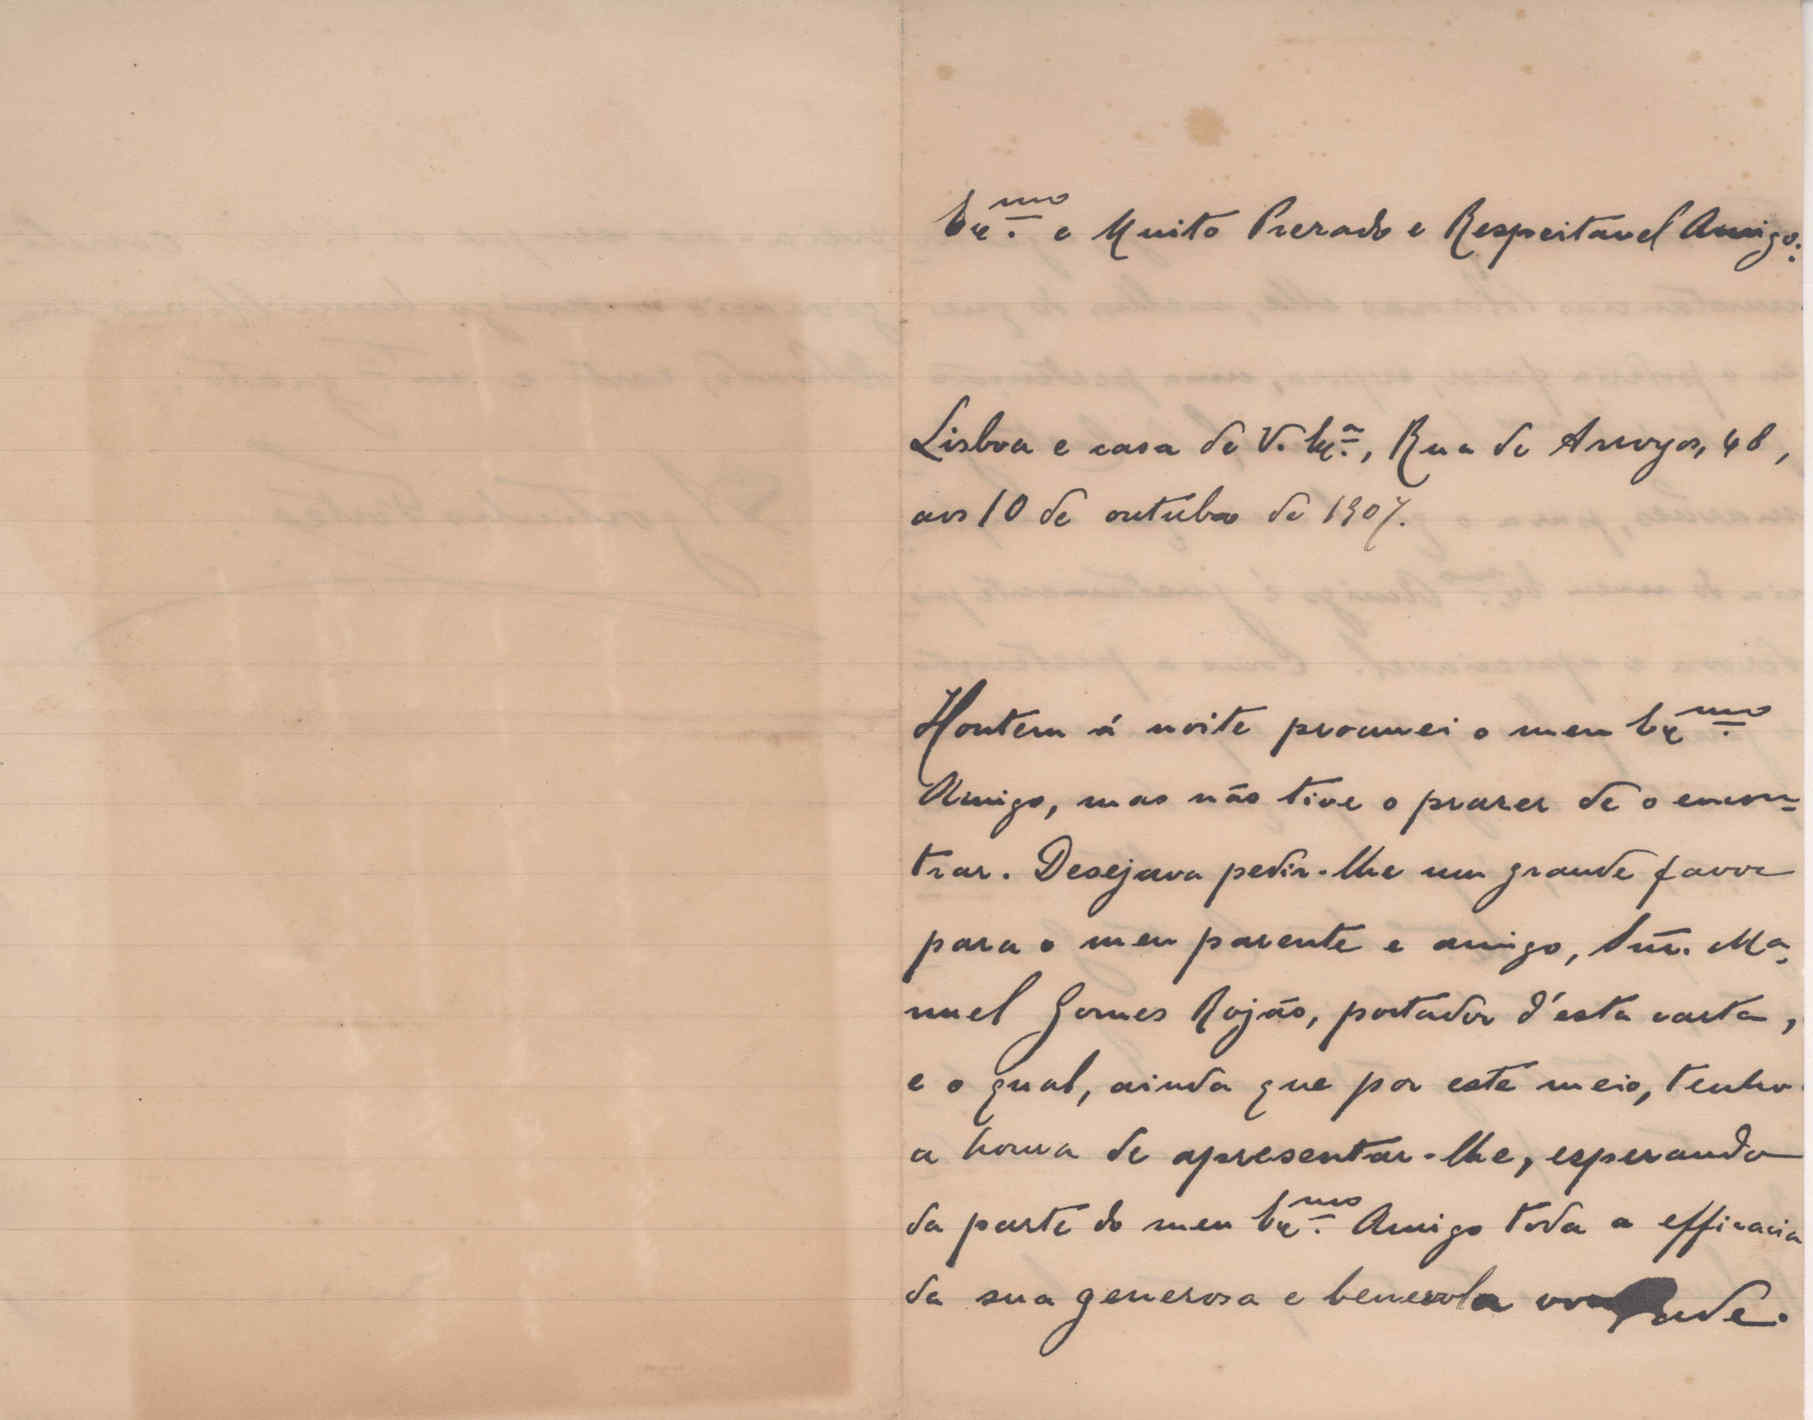 Ex.mo e Muito Prezado e Respeitavel Amigo:
Lisboa e casa de V. Ex.a, Rua de Arroyos, 48,
aos 10 de outubro de 1907.
Hontem á noite procurei o meu Ex.mo
Amigo, mas não tive o prazer de o encon=
trar. Desejava pedir-lhe um grande favor
para o meu parente e amigo, Snr. Ma-
nuel Gomes Rojão, portador d'esta carta,
e o qual, ainda que por este meio, tenho
a honra de apresentar-lhe, esperando
da parte do meu Ex.mo Amigo toda a efficacia
da sua generosa e benevola vontade.